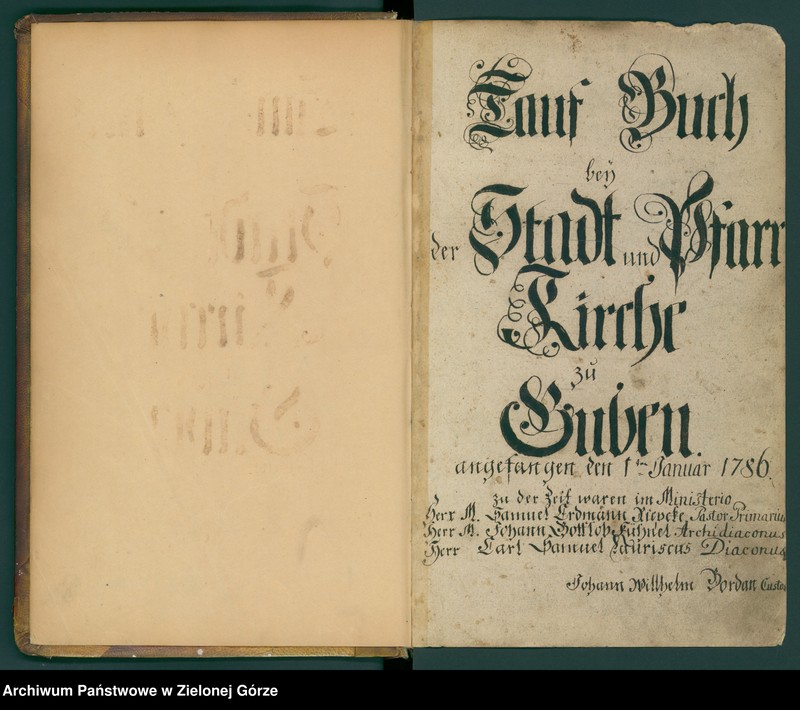 Tauf Buch
bey
der Stadt und Pfarr
Kirche
zu
Guben.
angefangen den 1ten Januar 1786.
zu der Zeit waren im Ministerio
Herr M. Samuel Erdmann Pastor Primarius
Herr M. Johann Gottlob Kühnel Archidiaconus
Herr Carl Samuel Diaconus
Johann Willhelm Bordan Custos
Archiwum Państwowe w Zielonej Górze